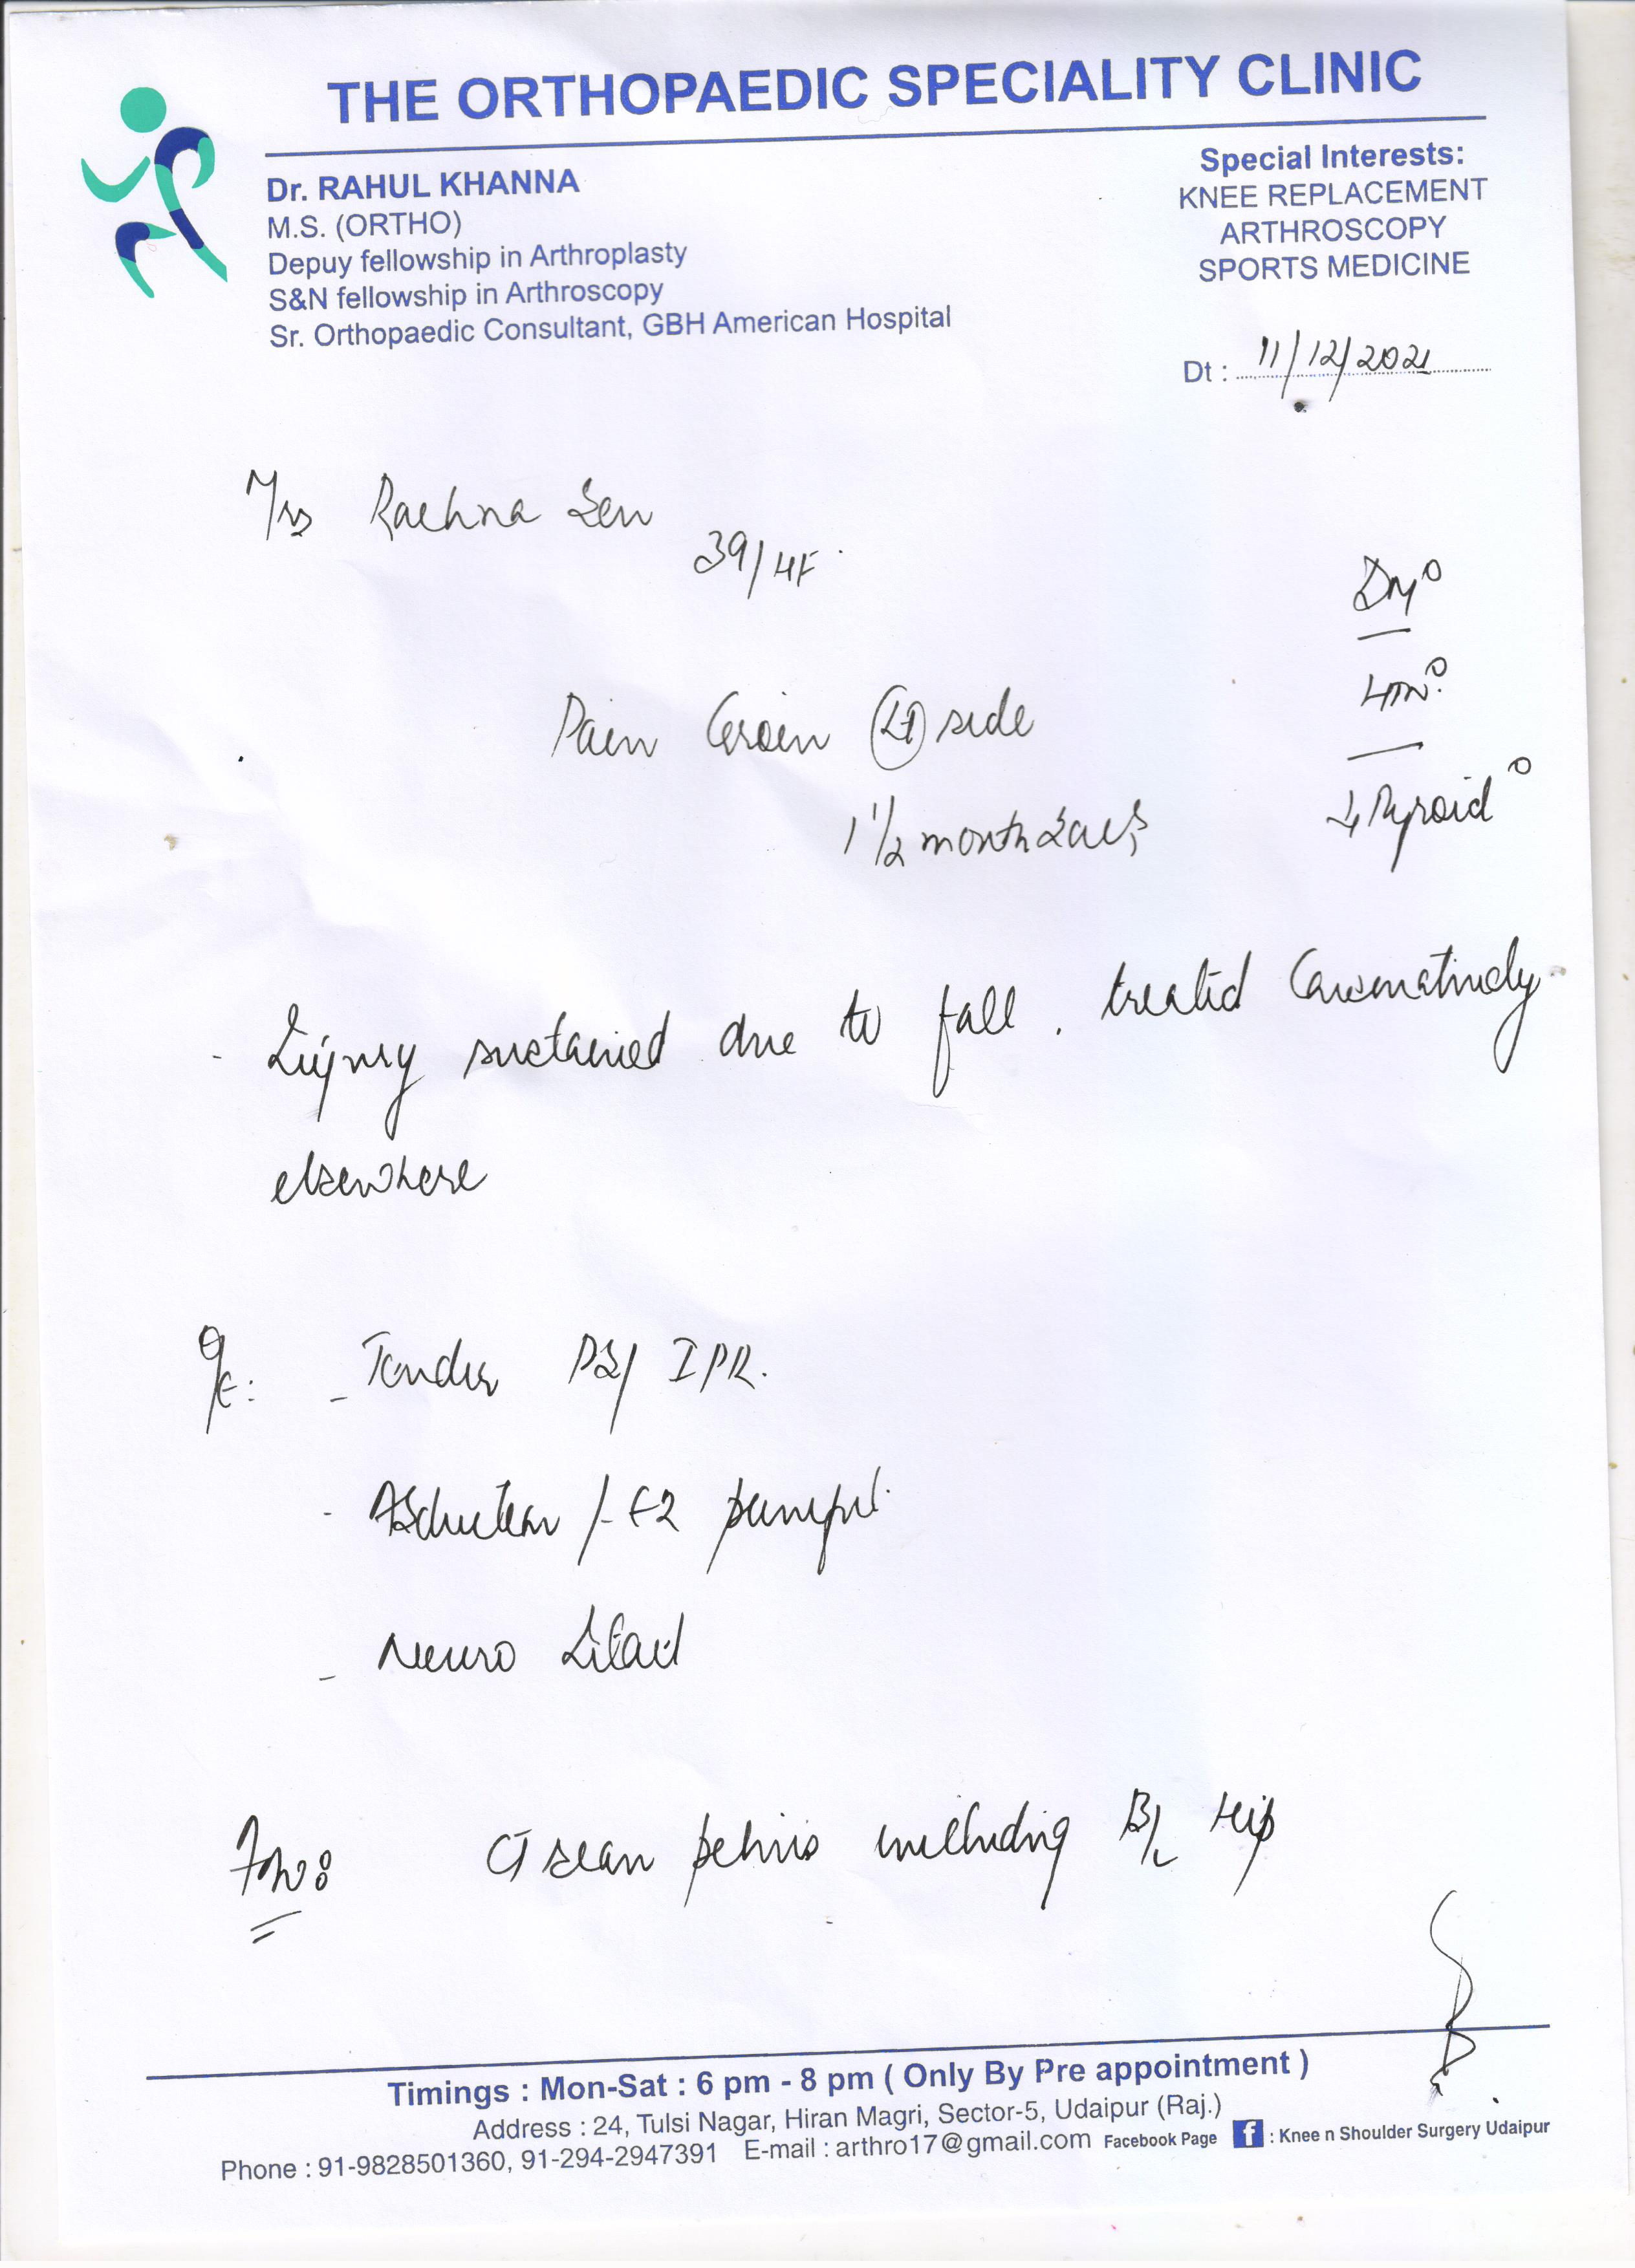 THE ORTHOPAEDIC SPECIALITY CLINIC
Dr. RAHUL KHANNA
M.S. (ORTHO)
Depuy fellowship in Arthroplasty
S&N fellowship in Arthroscopy
Sr. Orthopaedic Consultant, GBH American Hospital
Special Interests:
KNEE REPLACEMENT
ARTHROSCOPY
SPORTS MEDICINE
Dt : 11/12/2021
Mrs Rachna Sen
39/
DM°
HTN°
Thyroid°
Pain Groin (Lt) side
1 1/2 month back
- Injury sustained due to fall. treated Conservatively
elsewhere
O/E: - Tender IPR.
- Abduction / painful
- Neuro
Inv: CT scan pelvis including B/L Hip
Timings : Mon-Sat : 6 pm - 8 pm ( Only By Pre appointment )
Address : 24, Tulsi Nagar, Hiran Magri, Sector-5, Udaipur (Raj.)
Phone : 91-9828501360, 91-294-2947391 E-mail : arthro17@gmail.com Facebook Page f : Knee n Shoulder Surgery Udaipur